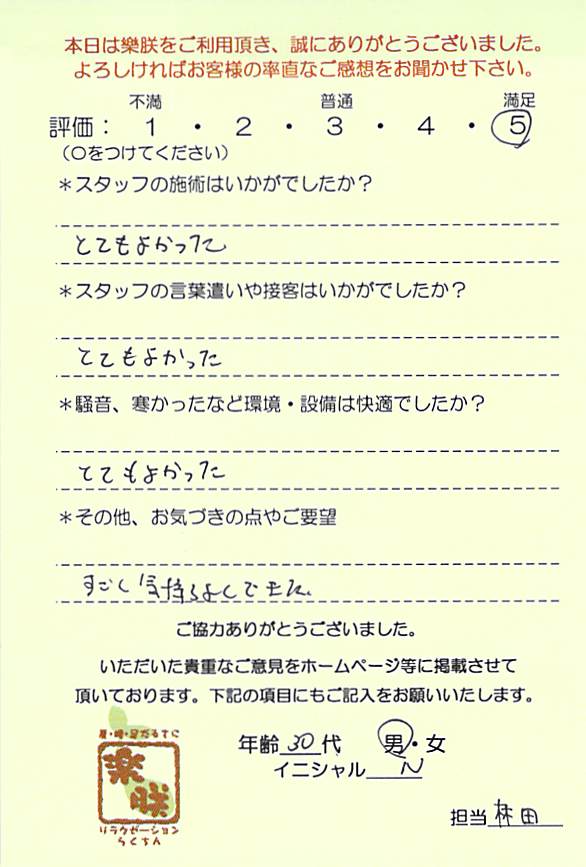 本日は樂朕をご利用頂き、誠にありがとうございました。
よろしければお客様の率直なご感想をお聞かせ下さい。
不満 普通 満足
評価： 1 ・ 2 ・ 3 ・ 4 ・ 5
（○をつけてください）
＊スタッフの施術はいかがでしたか？
とてもよかった
＊スタッフの言葉遣いや接客はいかがでしたか？
とてもよかった
＊騒音、寒かったなど環境・設備は快適でしたか？
とてもよかった
＊その他、お気づきの点やご要望
すごく気持ちよくできた。
ご協力ありがとうございました。
いただいた貴重なご意見をホームページ等に掲載させて
頂いております。下記の項目にもご記入をお願いいたします。
年齢 30 代 男・女
イニシャル N
樂朕
リラクゼーション
らくちん
担当 林田